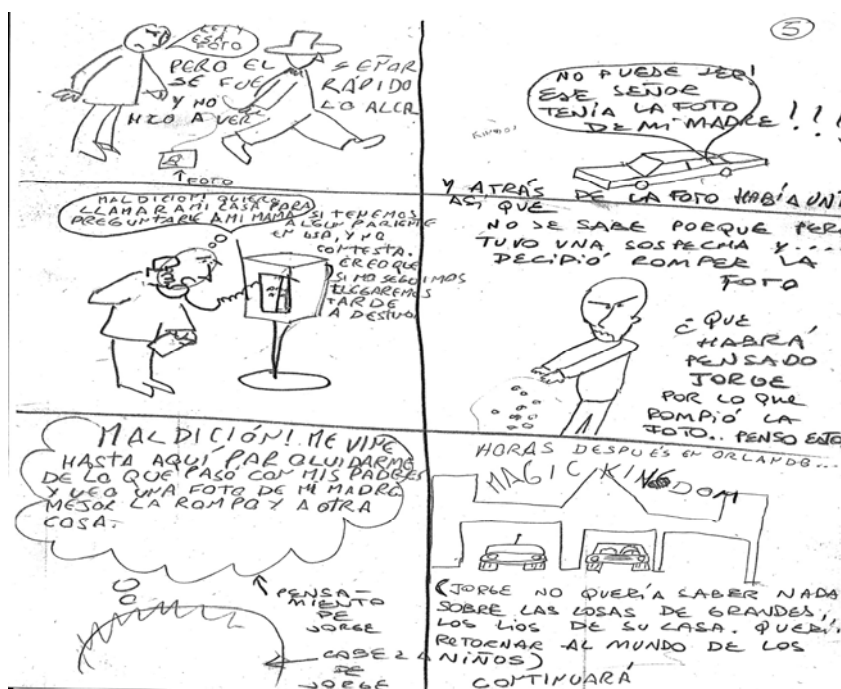 5
ESA
FOTO
PERO EL SEÑOR
SE FUE RÁPIDO
Y NO LO ALCA
HIZO A VER
↑
FOTO
NO PUEDE SER!
ESE SEÑOR
TENÍA LA FOTO
DE MI MADRE!!!
Y ATRÁS DE LA FOTO HABÍA UN
MALDICIÓN! QUIERO
LLAMAR A MI CASA PARA
PREGUNTARLE A MI MAMA SI TENEMOS
ALGUN PARIENTE
EN USA, Y NO
CONTESTA.
CREO QUE
SI NO SEGUIMOS
LLEGAREMOS
TARDE
A
ASI QUE
NO SE SABE PORQUE PERO
TUVO UNA SOSPECHA Y....
DECIDIÓ ROMPER LA
FOTO
¿QUE
HABRÁ
PENSADO
JORGE
POR LO QUE
ROMPIÓ LA
FOTO.. PENSO ESTO
MALDICIÓN! ME VINE
HASTA AQUÍ PAR OLVIDARME
DE LO QUE PASÓ CON MIS PADRES
Y VEO UNA FOTO DE MI MADRE
MEJOR LA ROMPO Y A OTRA
COSA.
PENSA-
MIENTO
DE
JORGE
CABEZA
DE
JORGE
HORAS DESPUÉS EN ORLANDO...
MAGIC KINGDOM
(JORGE NO QUERÍA SABER NADA
SOBRE LAS COSAS DE GRANDES,
LOS LIOS DE SU CASA. QUERÍ
RETORNAR AL MUNDO DE LOS
NIÑOS)
CONTINUARÁ